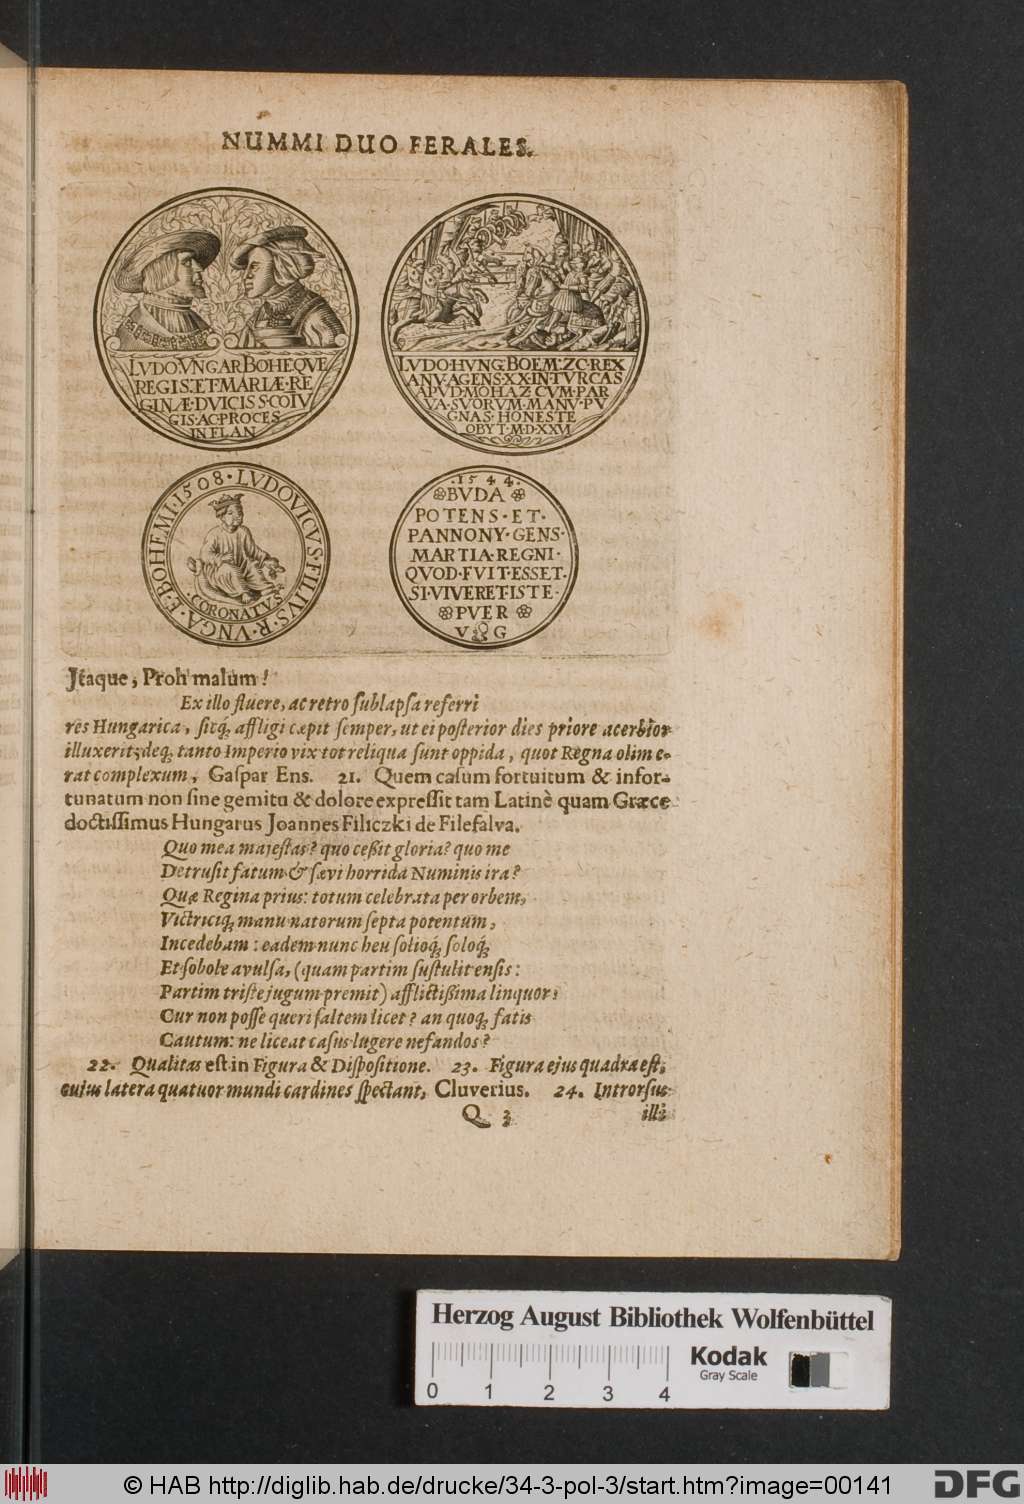 NUMMI DUO FERALES.
LVDO:VNGAR BOHEQVE
REGIS:ET·MARIÆ·RE
GINÆ·DVICIS S·COIV
GIS·AC·PROCES
IN ELAN
LVDO·HVNG BOEM:ZC·REX
ANV·AGENS·XX·IN·TVRCAS
APVD·MOHAZ·CVM·PAR
VA·SVORVM·MANV·PV
GNAS·HONESTE
OBYT·M·D·XXVI
1508·LVDOVICVS·FILIVS·R·VNGA·E·BOHEMI·
·CORONATVS·
·1544·
BVDA
POTENS·ET·
PANNONY·GENS·
MARTIA·REGNI·
QVOD·FVIT·ESSET·
SI·VIVERET·ISTE·
PVER
V G
Itaque, Proh malum!
Ex illo fluere, ac retro ſublapſa referri
res Hungarica, ſitq́; affligi cæpit ſemper, ut ei poſterior dies priore acerbior
illuxerit; deq́; tanto Imperio vix tot reliqua ſunt oppida, quot Regna olim e-
rat complexum, Gaſpar Ens. 21. Quem caſum fortuitum & infor-
tunatum non ſine gemitu & dolore expreſſit tam Latinè quam Græce
doctiſſimus Hungarus Joannes Filiczki de Filefalva.
Quo mea majeſtas? quo ceßit gloria? quo me
Detruſit fatum & ſævi horrida Numinis ira?
Quæ Regina prius: totum celebrata per orbem,
Victriciq́; manu natorum ſepta potentum,
Incedebam: eadem nunc heu ſolioq́; ſoloq́;
Et ſobole avulſa, (quam partim ſuſtulit enſis:
Partim triſte jugum premit) afflictißima linquor:
Cur non poſſe queri ſaltem licet? an quoq́; fatis
Cautum: ne liceat caſus lugere nefandos?
22. Qualitas eſt in Figura & Diſpoſitione. 23. Figura ejus quadra eſt,
cujus latera quatuor mundi cardines ſpectant, Cluverius. 24. Introrſus
Q 3 illi
Herzog August Bibliothek Wolfenbüttel
Kodak
Gray Scale
0 1 2 3 4
© HAB http://diglib.hab.de/drucke/34-3-pol-3/start.htm?image=00141
DFG